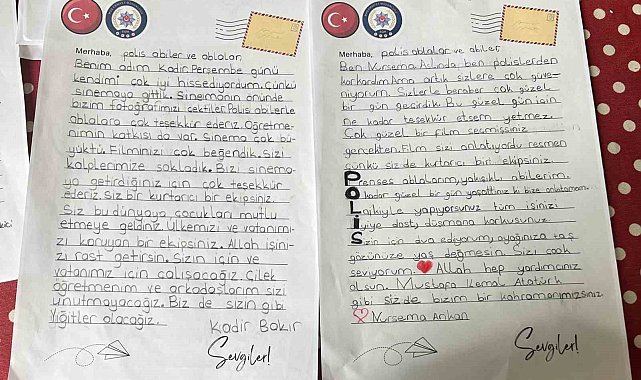 Merhaba, polis abiler ve ablalar,
Benim adım Kadir. Perşembe günü
kendimi çok iyi hissediyordum. Çünkü
sinemaya gittik. Sinemanın önünde
bizim fotoğrafımızı çektiler. Polis abilerle
ablalara çok teşekkür ederiz. Öğretme-
nimin katkısı da var. Sinema çok bü-
yüktü. Filminizi çok beğendik. Sizi
kalplerimize sakladık. Bizi sinema-
ya getirdiğiniz için çok teşekkür
ederiz. Siz bir kurtarıcı bir ekipsiniz.
Siz bu dünyaya çocukları mutlu
etmeye geldiniz. Ülkemizi ve vatanımı-
zı koruyan bir ekipsiniz. Allah işini-
zi rast getirsin. Sizin için ve
vatanımız için çalışacağız. Çilek
öğretmenim ve arkadaşlarım sizi
unutmayacağız. Biz de sizin gibi
Yiğitler olacağız.
Kadir Bakır
Sevgiler!
Merhaba, polis ablalar ve abiler,
Ben Nursema Aslında ben polislerden
korkardım. Ama artık sizlere çok güve-
niyorum. Sizlerle beraber çok güzel
bir gün geçirdik. Bu güzel gün için
ne kadar teşekkür etsem yetmez.
Çok güzel bir film seçmişsiniz
gerçekten. Film sizi anlatıyordu resmen
çünkü siz de kurtarıcı bir ekipsiniz.
Prenses ablalarım, yakışıklı abilerim.
O kadar güzel bir gün yaşattınız ki bize anlatamam.
Layıkıyle yapıyorsunuz tüm işinizi
İyiye dost, düşmana korkusunuz.
Sizin için dua ediyorum, ayağınıza taş
gözünüze yaş değmesin. Sizi çook
seviyorum. Allah hep yardımcınız
olsun. Mustafa Kemal Atatürk
gibi siz de bizim bir kahramanımızsınız.
Nursema Arıkan
Sevgiler!